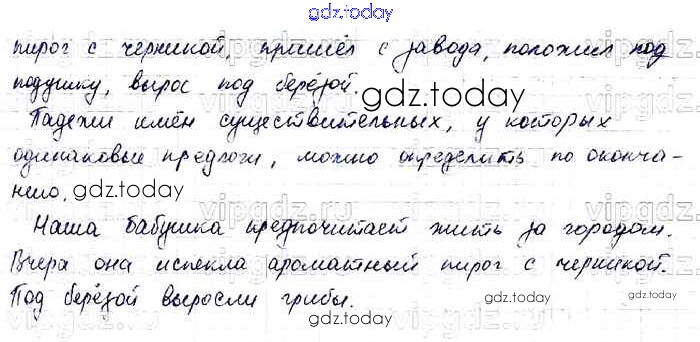 gdz.today
пирог с черникой, пришёл с завода, положил под
подушку, вырос под берёзой.
gdz.today
Падежи имён существительных, у которых
одинаковые предлоги, можно определить по оконча-
нию.
gdz.today
vipgdz.ru
Наша бабушка предпочитает жить за городом.
Вчера она испекла ароматный пирог с черникой.
Под берёзой выросли грибы.
gdz.today
gdz.today
gdz.today